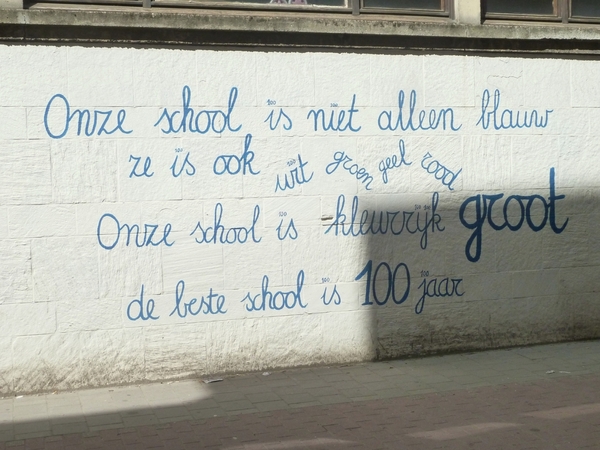 Onze school is niet alleen blauw
ze is ook wit groen geel rood
Onze school is kleurrijk groot
de beste school is 100 jaar